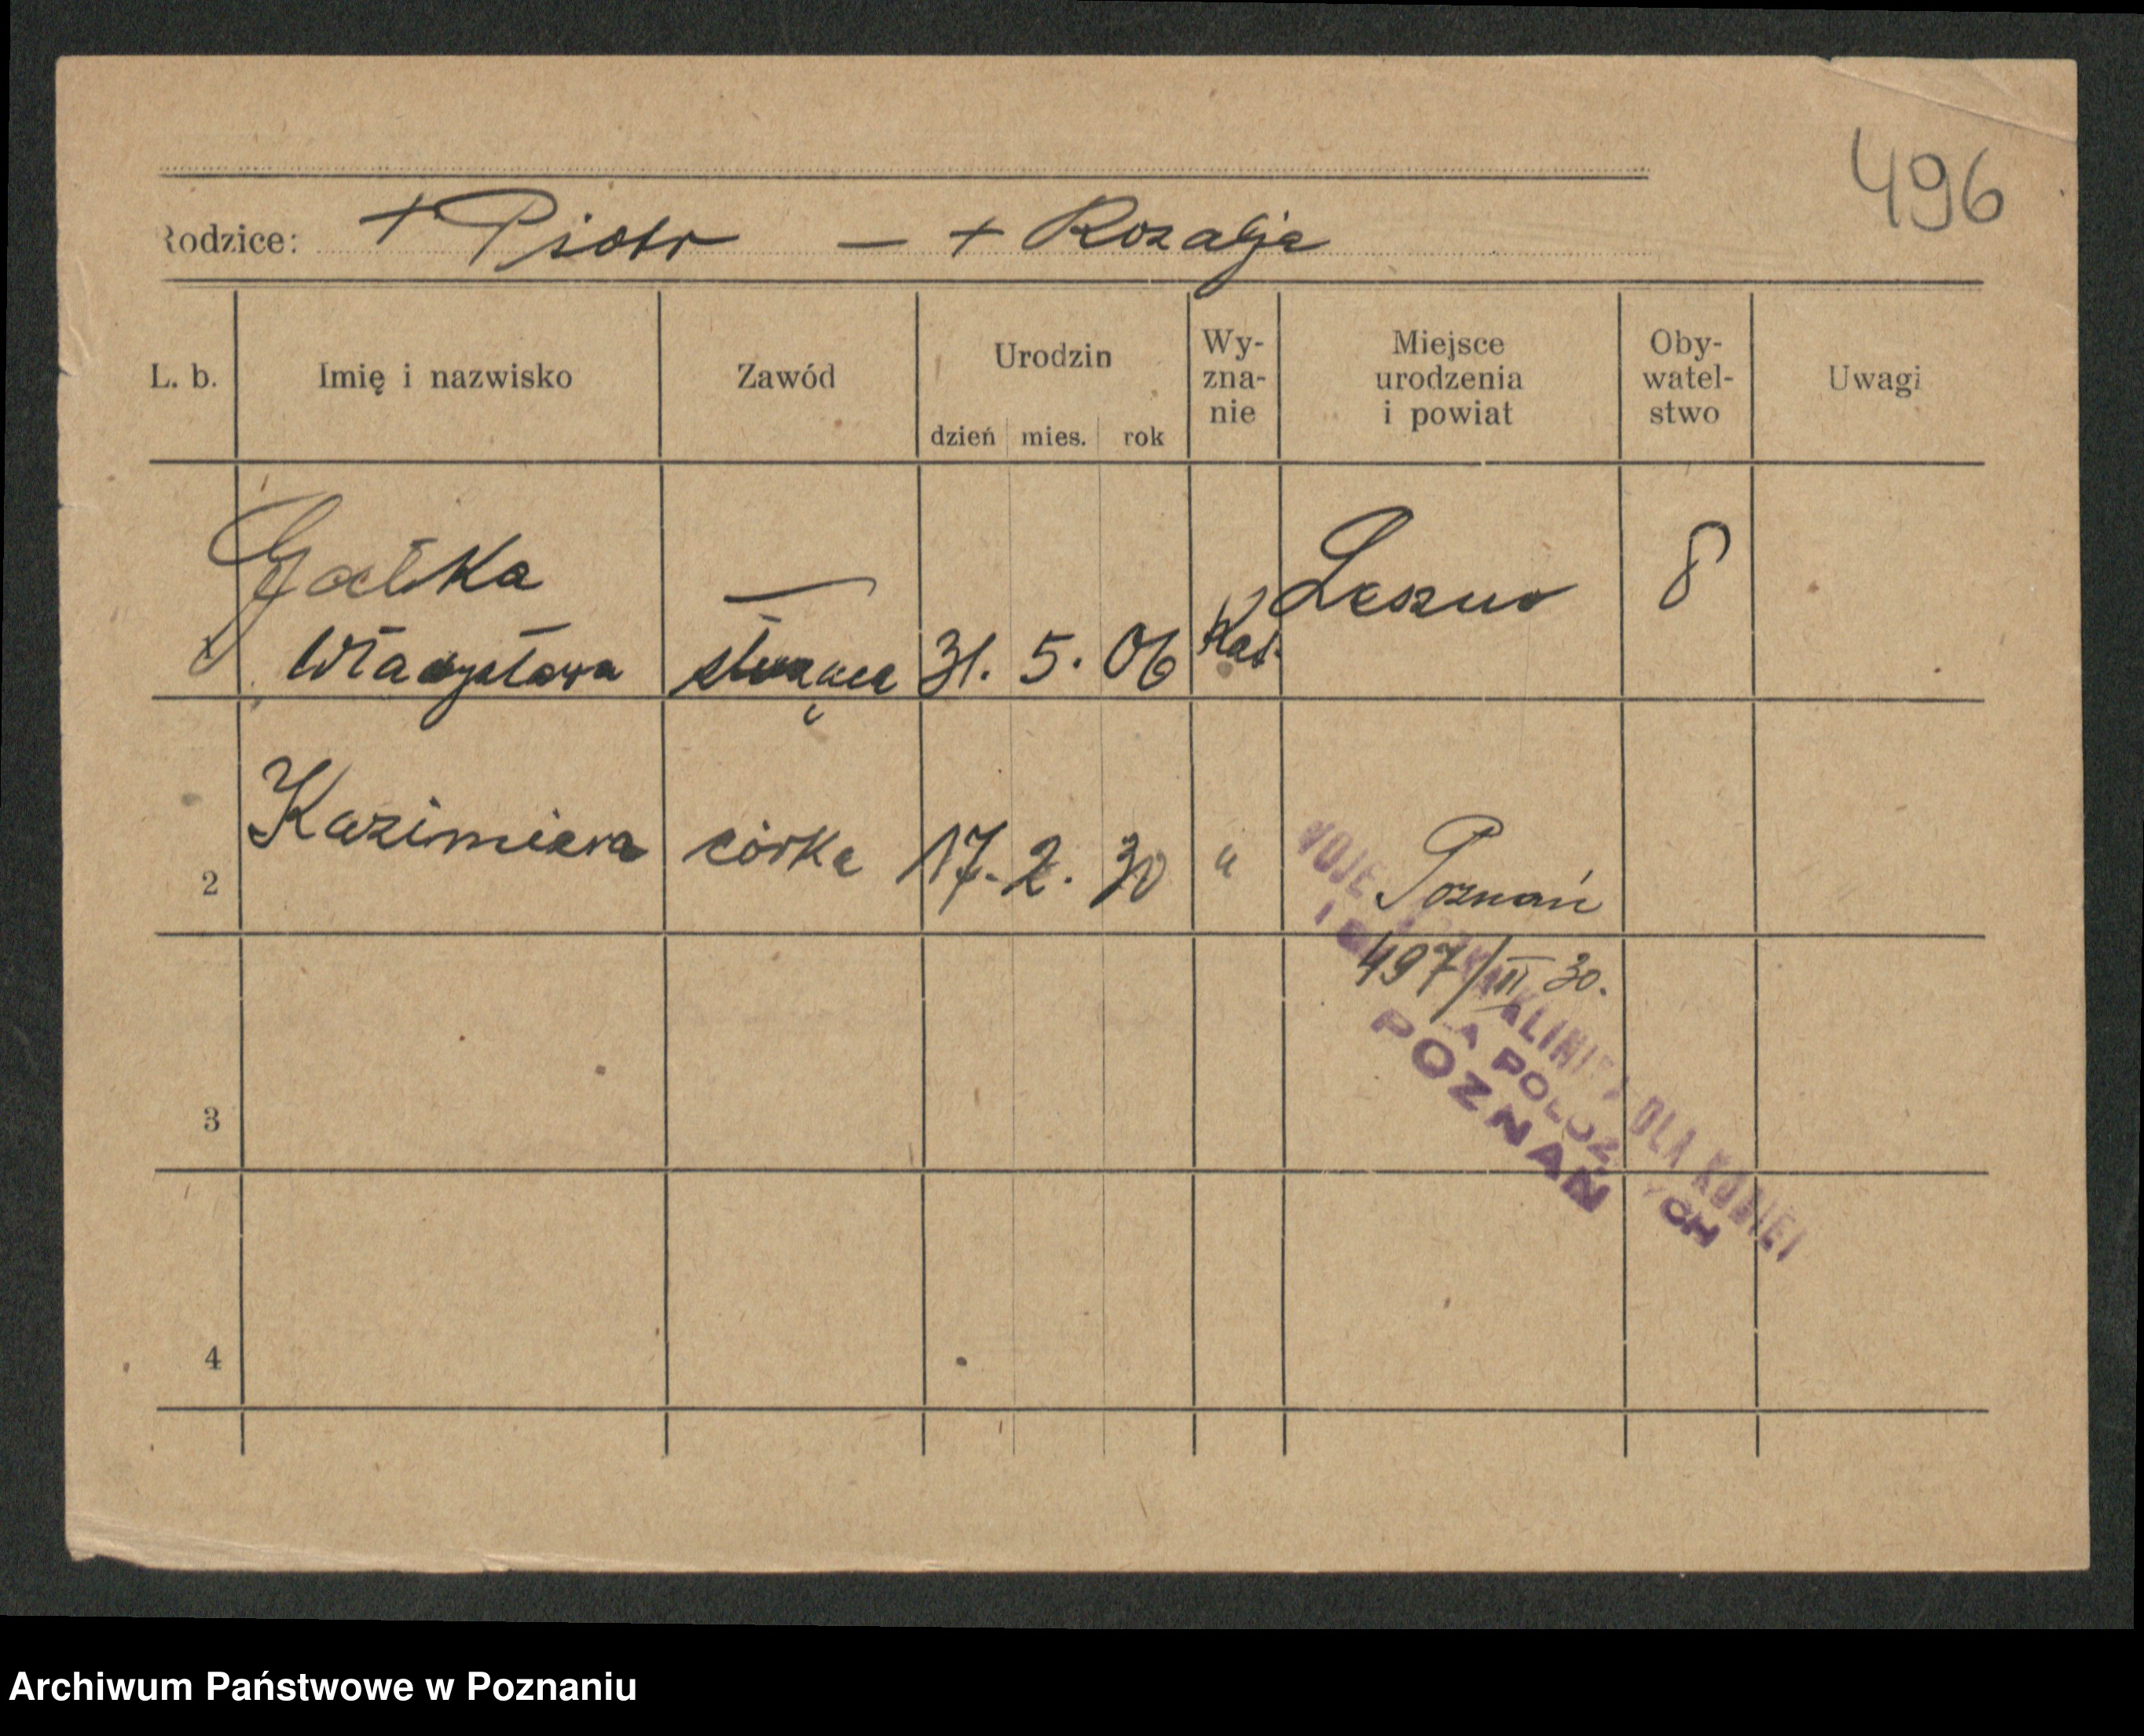 496
Rodzice: + Piotr — + Rozalja
L. b. Imię i nazwisko Zawód Urodzin dzień mies. rok Wy-zna-nie Miejsce urodzenia i powiat Oby-watel-stwo Uwagi
Gałka — Leszno
Władysława służąca 31. 5. 06 Kat.
2 Kazimiera córka 17. 2. 30 " Poznań
497/II 30.
KLINIKA DLA KOBIET
POŁOŻNYCH
POZNAŃ
3
4
Archiwum Państwowe w Poznaniu